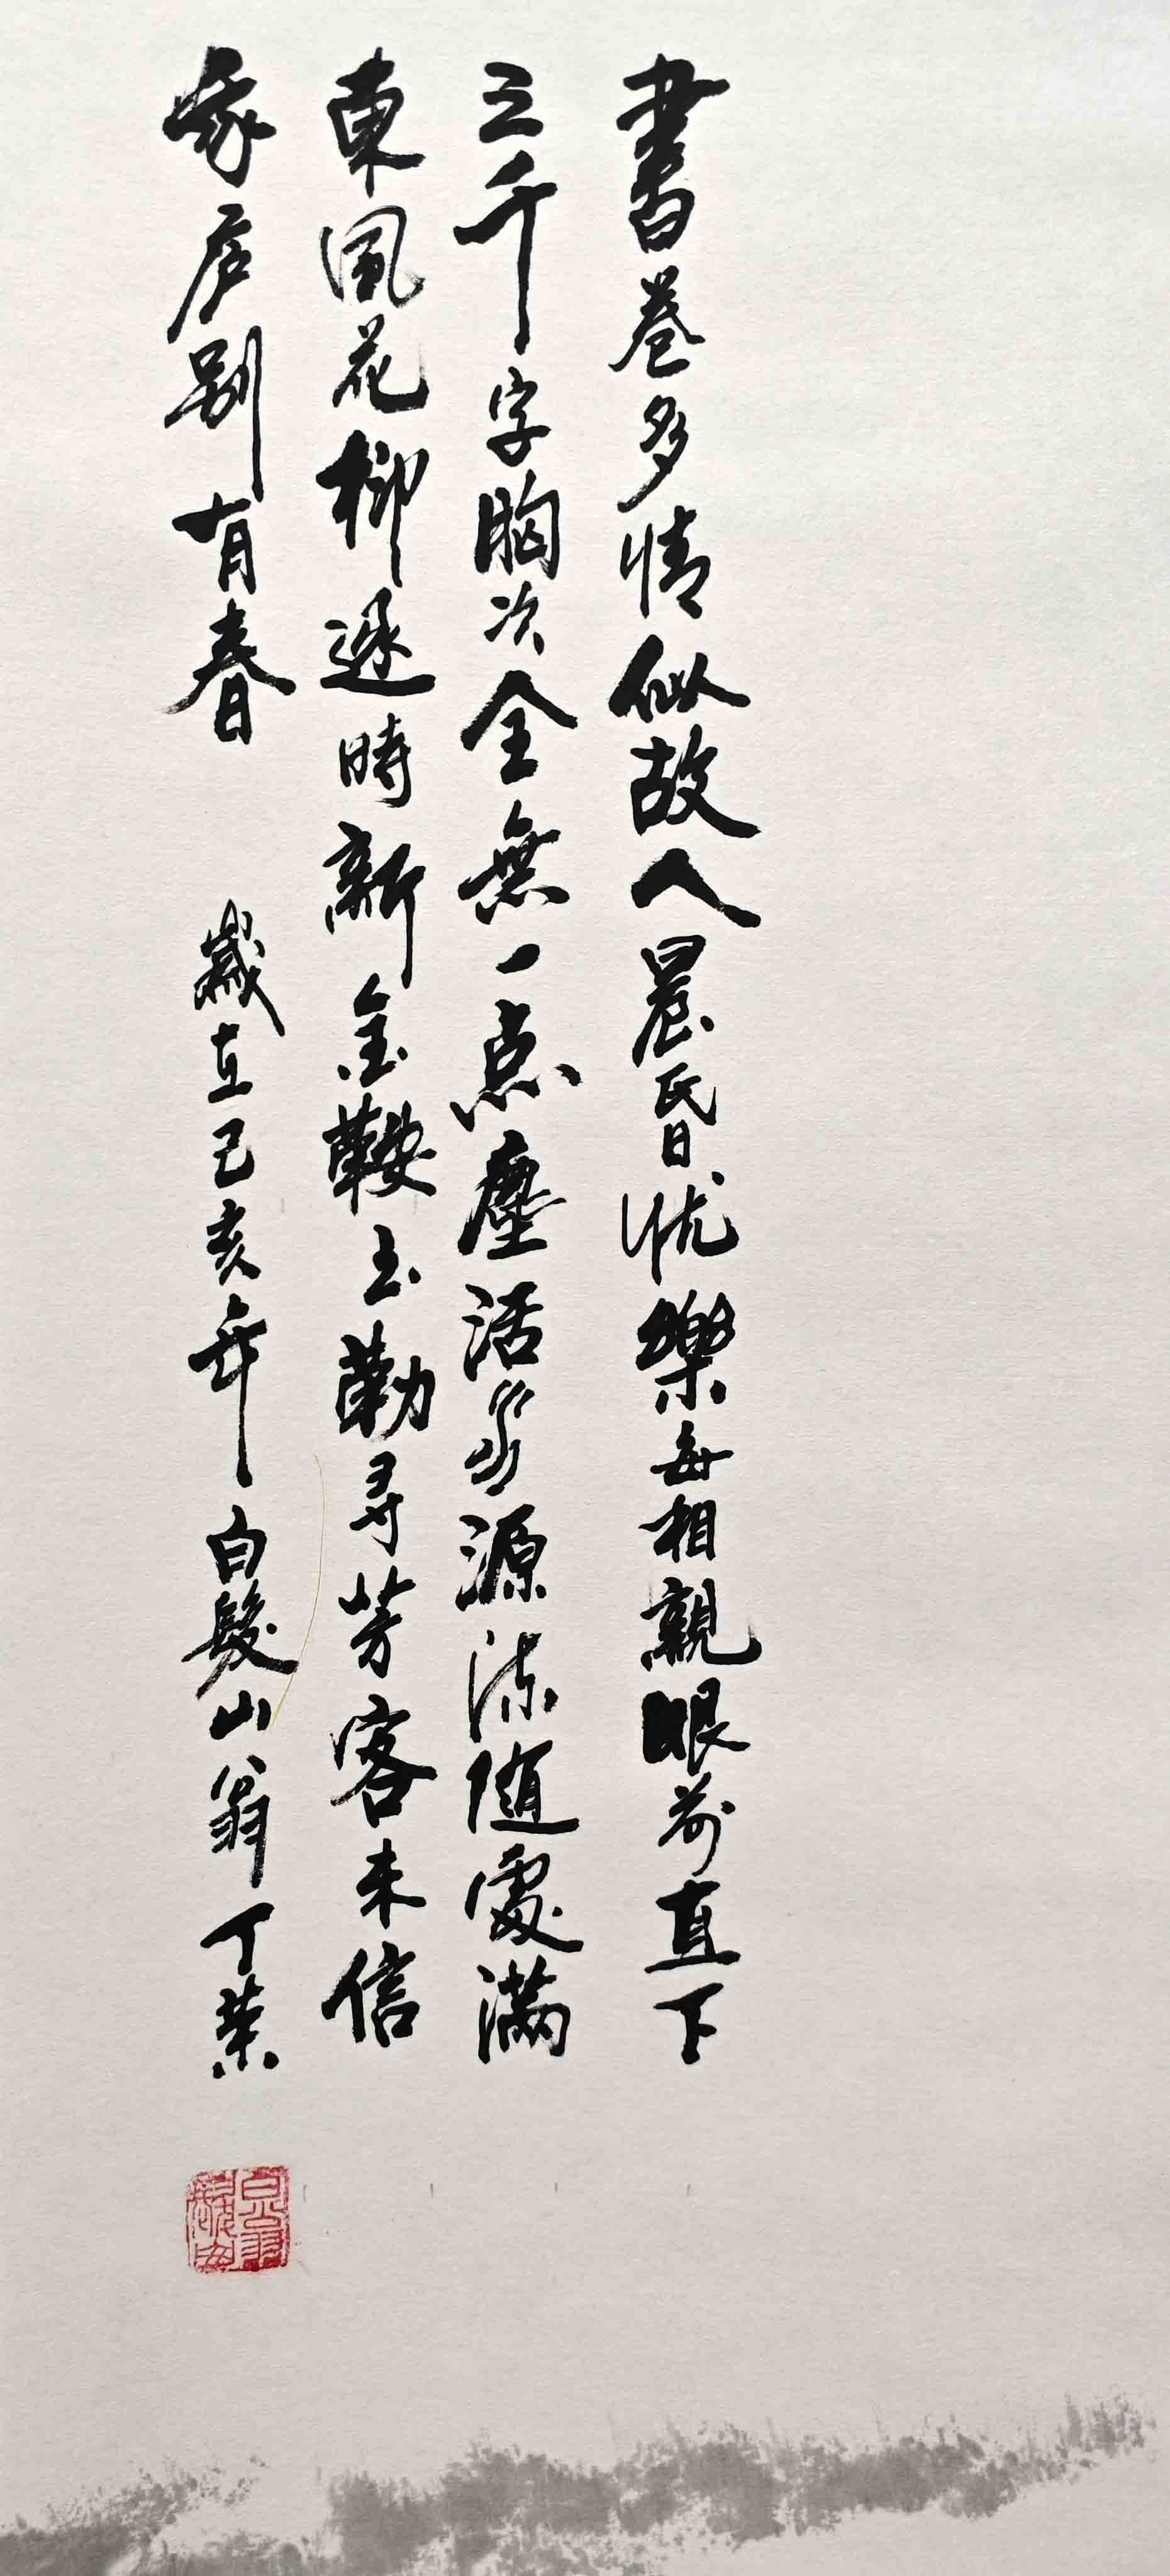 書卷多情似故人晨昏忧樂每相親眼前直下
三千字胸次全無一点塵活水源流随處滿
東風花柳逐時新金鞍玉勒寻芳客未信
我庐别有春 歲在己亥年白髮山翁丁荣